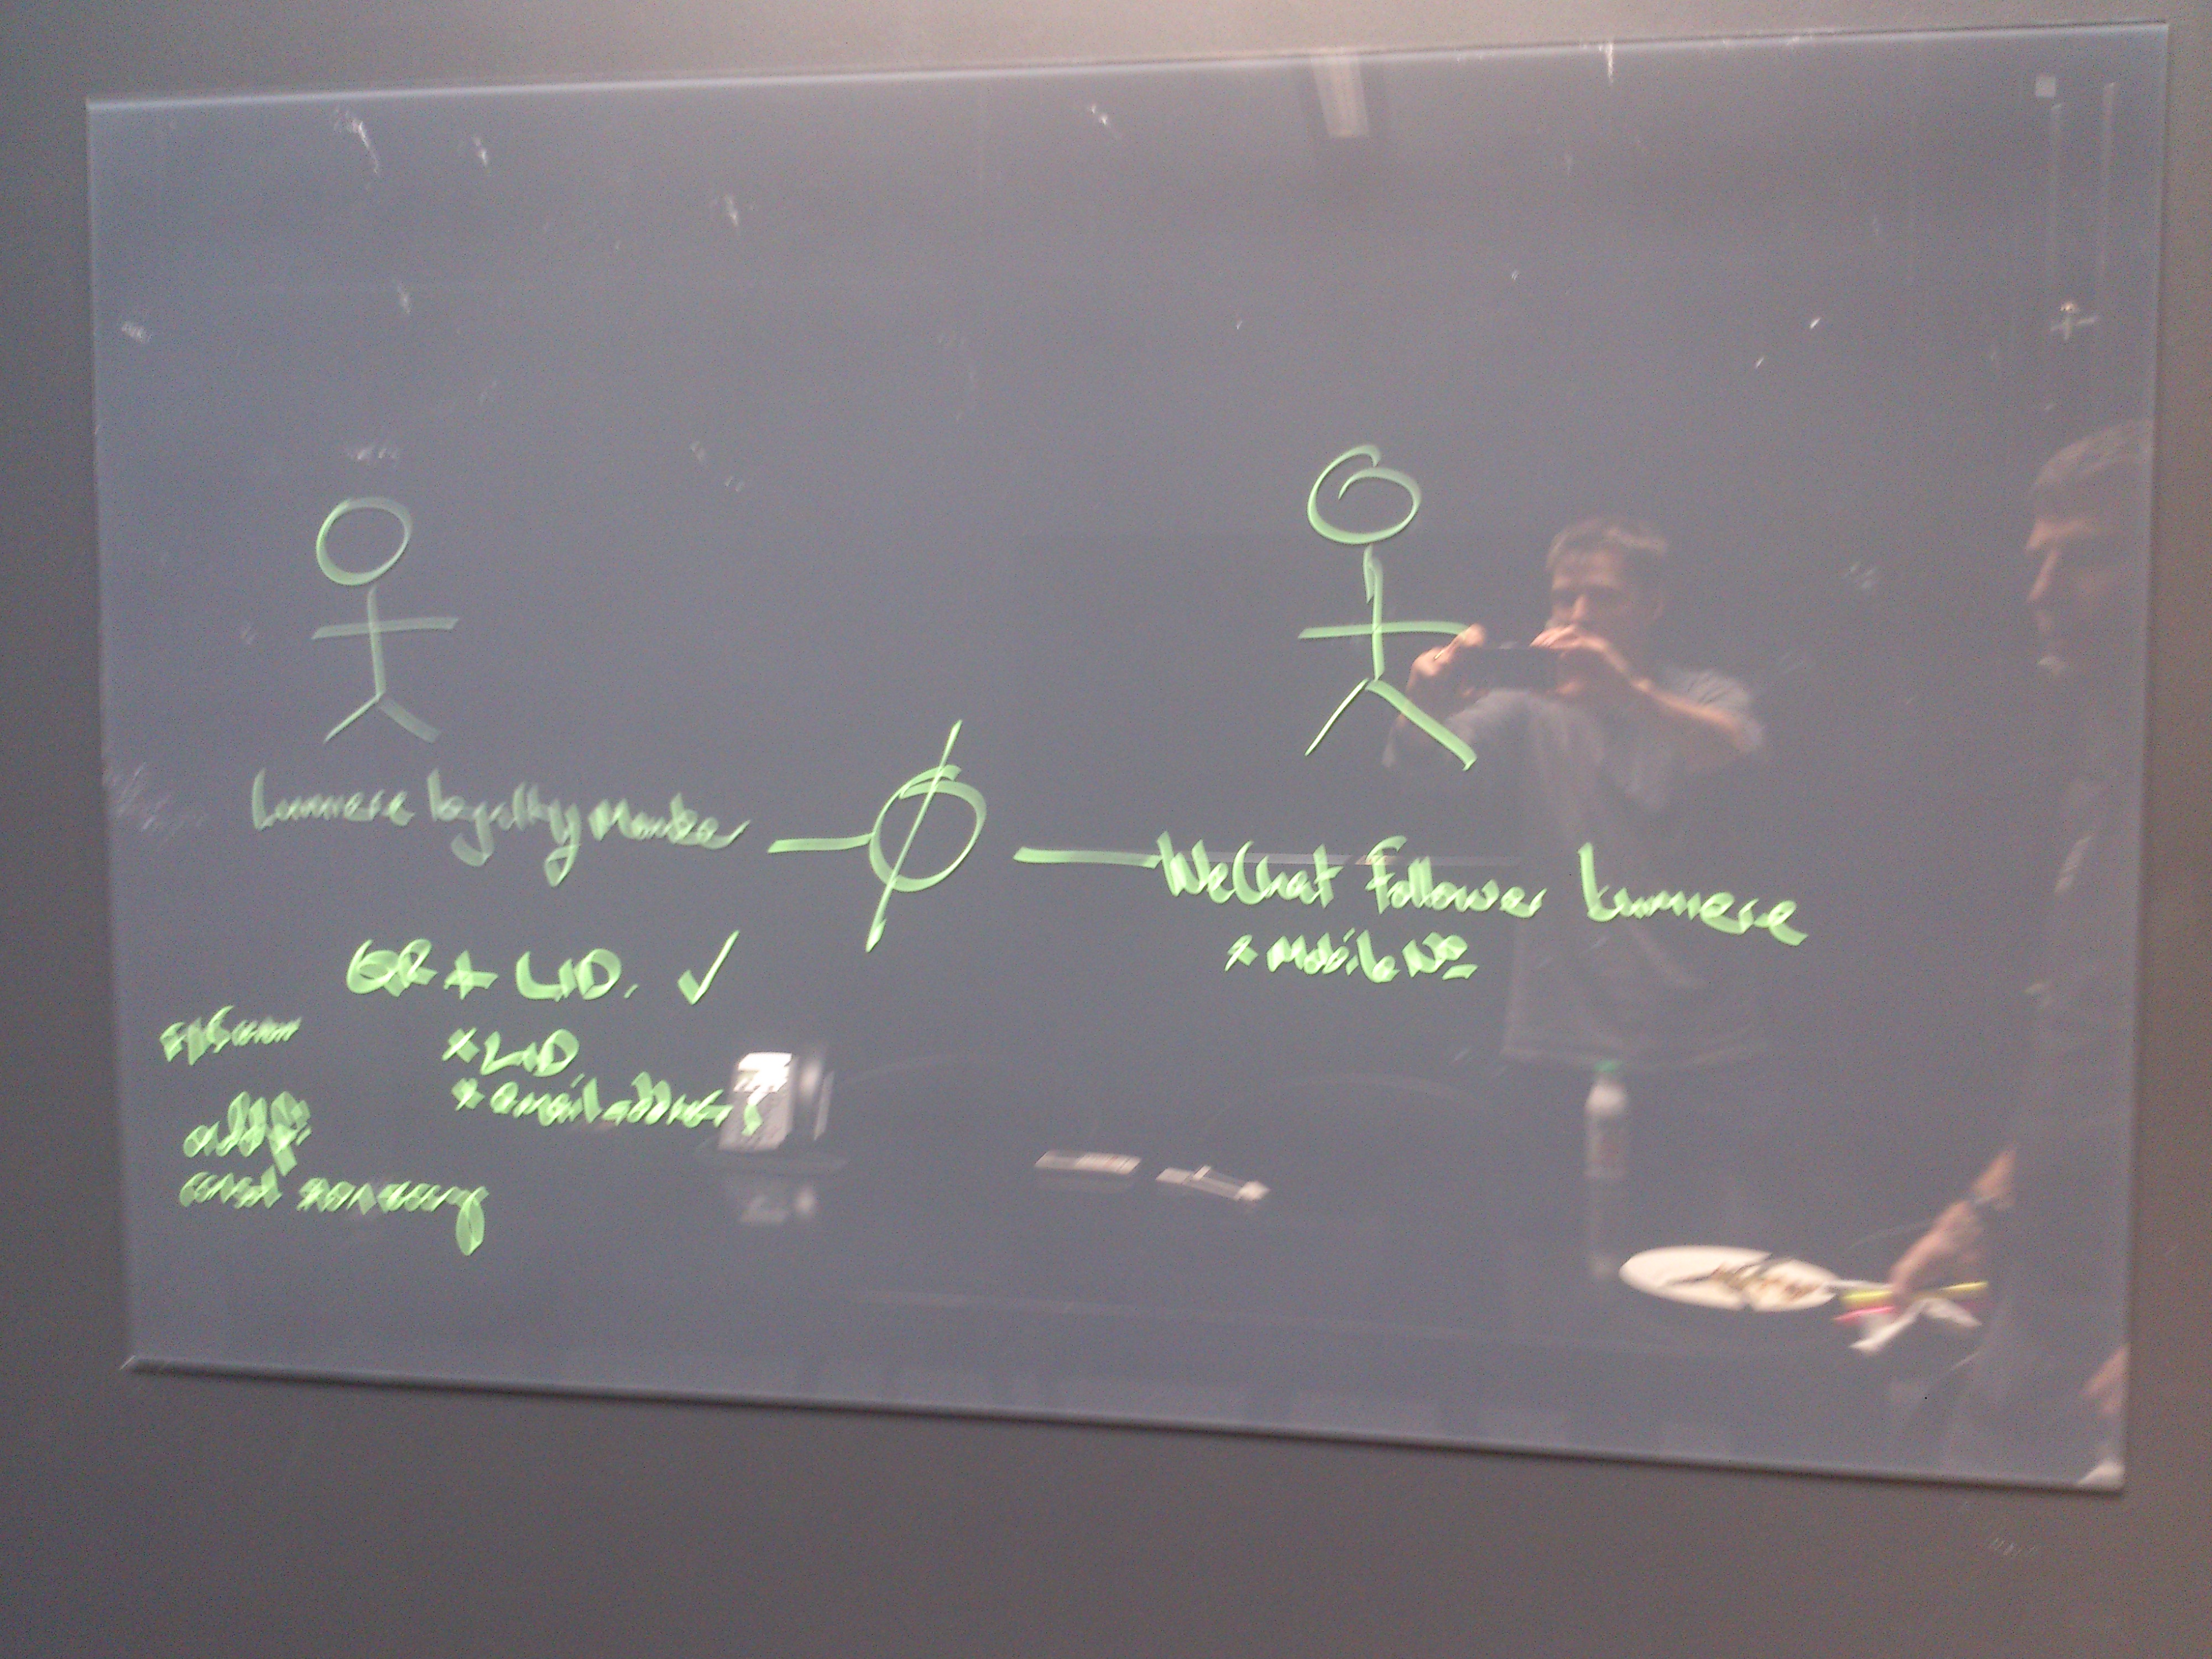 Lumiere loyalty Member
WeChat Follower Lumiere
* Mobile No
QR + LID. ✓
* LID
* email address